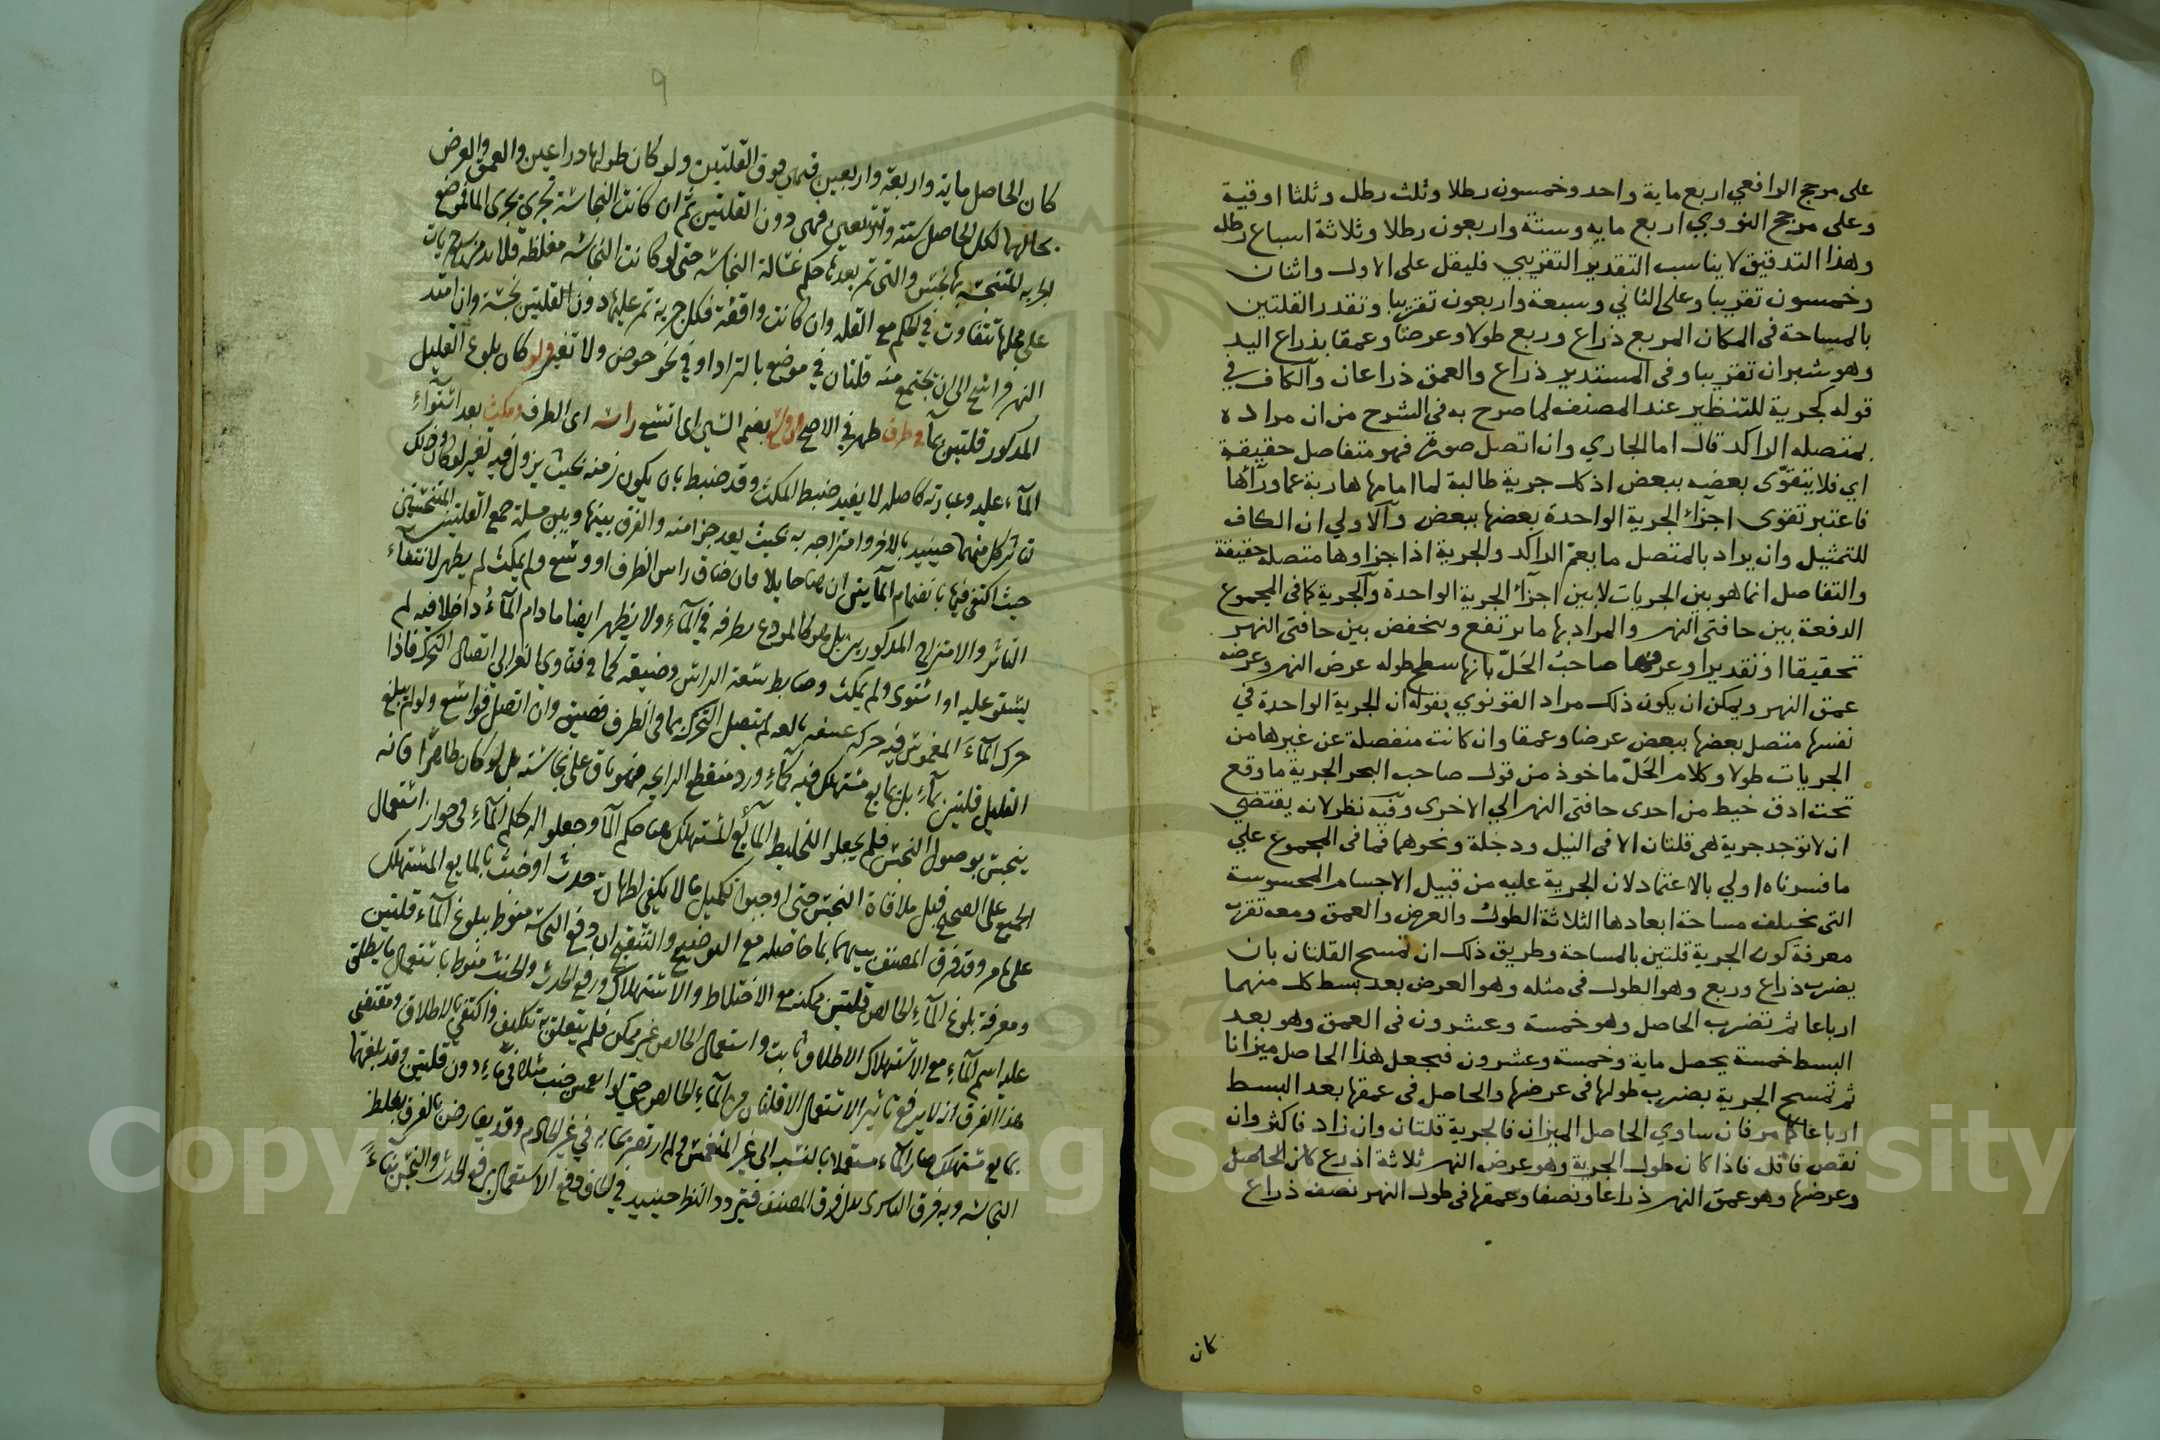 على مرجح الرافعي اربع ماية واحد وخمسون رطلا وثلث رطل وثلثا اوقية
وعلى مرجح النووي اربع مايه وستة واربعون رطلا وثلاثة اسباع رطل
وهذا التدقيق لا يناسب التقدير التقريبي فليقل على الاول واثنان
وخمسون تقريبا وعلى الثاني وسبعة واربعون تقريبا وتقدر القلتين
بالمساحة فى المكان المربع ذراع وربع طولا وعرضا وعمقا بذراع اليد
وهو شبران تقريبا وفى المستدير ذراع والعمق ذراعان والكاف في
قوله كجرية للتنظير عند المصنف لما صرح به فى الشرح من ان مراده
بمتصله الراكد قال اما الجاري وان اتصل صورة فهو متفاصل حقيقة
اي فلا يتقوى بعضه ببعض اذ كل جرية طالبة لما امامها هاربة عما ورآئها
فاعتبر تقوى اجزآء الجرية الواحدة بعضها ببعض والاولي ان الكاف
للتمثيل وان يراد بالمتصل ما يعم الراكد والجرية اذ اجزاوها متصلة حقيقة
والتفاصل انما هو بين الجريات لا بين اجزآء الجرية الواحدة والجرية كما فى المجموع
الدفعة بين حافتى النهر والمراد بها ما يرتفع وينخفض بين حافتى النهر
تحقيقا او تقديرا وعرفها صاحب الحل بانها سطح طوله عرض النهر وعرضه
عمق النهر ويمكن ان يكون ذلك مراد القونوي بقوله ان الجرية الواحدة في
نفسها متصل بعضها ببعض عرضا وعمقا وان كانت منفصلة عن غيرها من
الجريات طولا وكلام الحل ماخوذ من قول صاحب البحر الجرية ما وقع
تحت ادق خيط من احدى حافتى النهر الي الاخرى وفيه نظر لانه يقتضي
ان لا توجد جرية هى قلتان الا فى النيل ودجلة ونحوهما فما فى المجموع علي
ما فسرناه اولي بالاعتماد لان الجرية عليه من قبيل الاجسام المحسوسة
التى تختلف مساحة ابعادها الثلاثة الطول والعرض والعمق ومعه تقرب
معرفة كون الجرية قلتين بالمساحة وطريق ذلك ان تمسح القلتان بان
يضرب ذراع وربع وهو الطول فى مثله وهو العرض بعد بسط كل منهما
ارباعا ثم تضرب الحاصل وهو خمسة وعشرون فى العمق وهو بعد
البسط خمسة يحصل ماية وخمسة وعشرون فيجعل هذا الحاصل ميزانا
ثم تمسح الجرية بضرب طولها فى عرضها والحاصل فى عمقها بعد البسط
ارباعا كما مر فان ساوي الحاصل الميزان فالجرية قلتان وان زاد فاكثر وان
نقص فاقل فاذا كان طول الجرية وهو عرض النهر ثلاثة اذرع كان الحاصل
وعرضها وهو عمق النهر ذراعا ونصفا وعمقها فى طول النهر نصف ذراع
كان
٩
كان الحاصل ماية واربعة واربعين فهى فوق القلتين ولو كان طولها ذراعين والعمق والعرض
بحالهما لكان الحاصل ستة وتسعين فهى دون القلتين ثم ان كانت النجاسة تجري بجري الماء فموضع
الجريه المتنجسة بها نجس والتى تمر بعدها حكم غسالة النجاسة حتى لو كانت النجاسة مغلظه فلا بد من سبع جريات
على محلها تتفاوت في الحكم مع القلة وان كانت واقفة فكل جرية تمر عليها دون القلتين نجسة وان امتد
النهر واتسع الى ان تجتمع منه قلتان في موضع بالتراد او في نحو حوض ولا تغير ولو كان بلوغ القليل
المذكور قلتين بمآء وطرف طهر في الاصح ووسع بضم السين اى اتسع راسه اى الطرف ومكث بعد استوآء
المآء عليه وعبارة كاصله لا يفيد ضبط المكث وقد ضبط بان يكون زمنه بحيث يزول فيه لتغير لو كان وذلك
تاثر كل منهما حينيذ بالاخر وامتزاجه به بحيث يعد جزا منه والفرق بينها وبين مسلة جمع القلتين المتنجستين
حيث اكتفى فيها بانضمام المآيين ان هنا حايلا فان ضاق راس الظرف او وسع ولم يمكث لم يطهر لانتفاء
التاثر والامتزاج المذكورين بل هو كالمودع بظرفه في المآء ولا يظهر ايضا ما دام المآء داخلا فيه لم
يستو عليه او استوى ولم يمكث وضابط سعة الراس وضيقه كما في فتاوى الغزالي اتصال التحرك فاذا
حرك المآء المغموس فيه حركه عنيفه بالغه لم يتصل التحرك بما في الظرف فضيق وان اتصل فواسع ولو لم يبلغ
القليل قلتين بمآء بل بمايع مستهلك فيه كمآء ورد منقطع الرايحه فهو باق على نجاسته بل لو كان طاهرا فانه
ينجس بوصول النجس فلم يجعلوا الخليط المآئع المستهلك هنا حكم المآ وجعلوا له حكم المآء في جواز استعمال
الجميع على الصحيح قبل ملاقاة النجس حتى اوجبوا تكميل ما لا يكفى لطهارة حدث او خبث بالمايع المستهلك
على ما مر وقد فرق المصنف بينهما بما حاصله مع التوضيح والتنقيح ان دفع النجاسة منوط ببلوغ المآء قلتين
ومعرفة بلوغ المآء الخالص قلتين ممكنه مع الاختلاط والاستهلاك ورفع الحدث والخبث منوط باستعمال ما يطلق
عليه اسم المآء مع الاستهلاك الاطلاق ثابت واستعمال الخالص غير ممكن فلم يتعلق به تكليف واكتفي بالاطلاق ومقتضى
هذا الفرق انه لا يرفع تاثير الاستعمال الا قلتان من المآء الخالص حتى لو انغمس جنب مثلا في مآء دون قلتين وقد بلغهما
بمايع مستهلك صار المآء مستعملا بالنسبه الى غير المنغمس ولم ار تصريحا به في غير الخادم وقد يعارض الفرق بغلظ
النجاسة وبه فرق السبكي بدل فرق المصنف فيتردد النظر حينيذ في الحاق دفع الاستعمال برفع الحدث والنجس بنآء